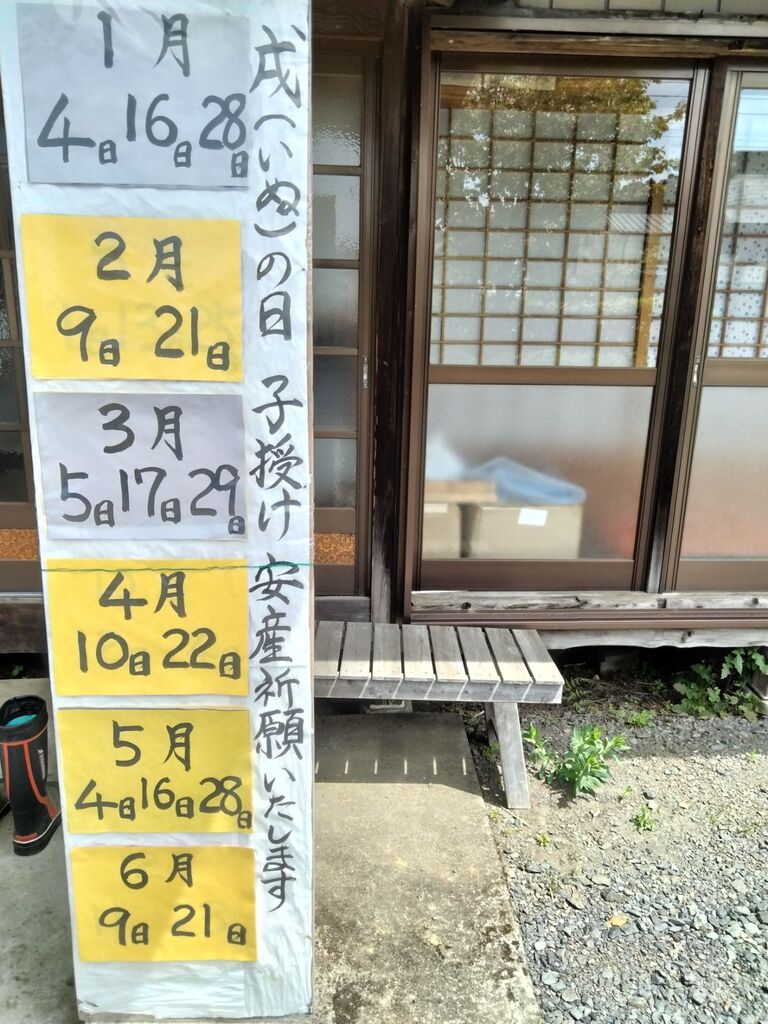 戌(いぬ)の日 子授け 安産祈願いたします
1月
4日 16日 28日
2月
9日 21日
3月
5日 17日 29日
4月
10日 22日
5月
4日 16日 28日
6月
9日 21日